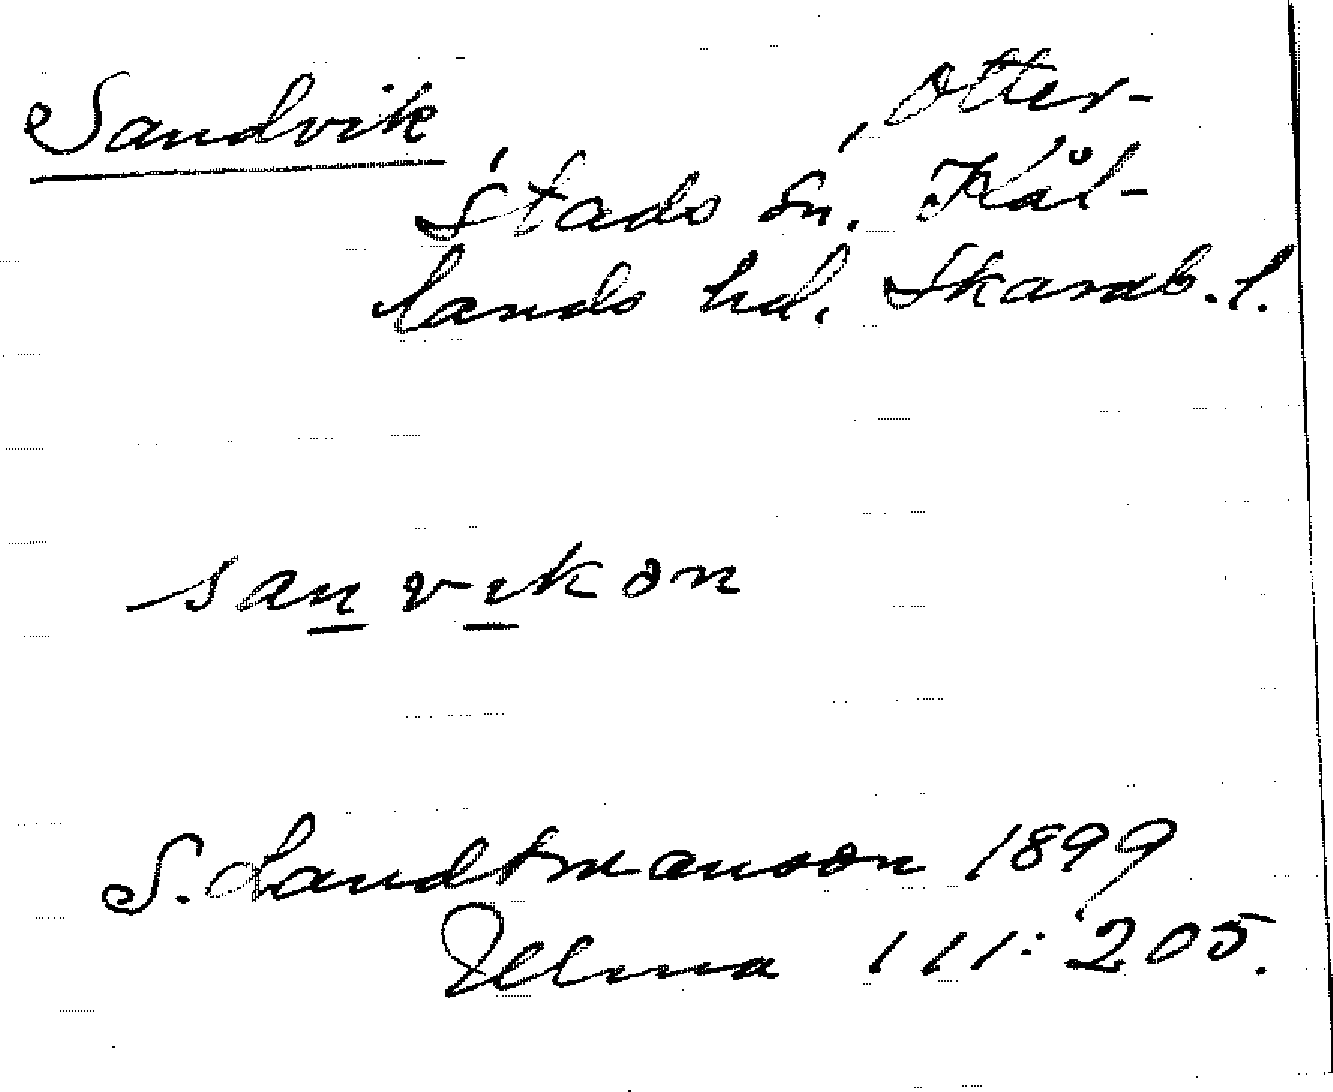 Sandvik
Otter-
stads sn. Kål-
lands hd. Skarab. l.
san vikən
S. Landtmanson 1899
Ulma 111:205.